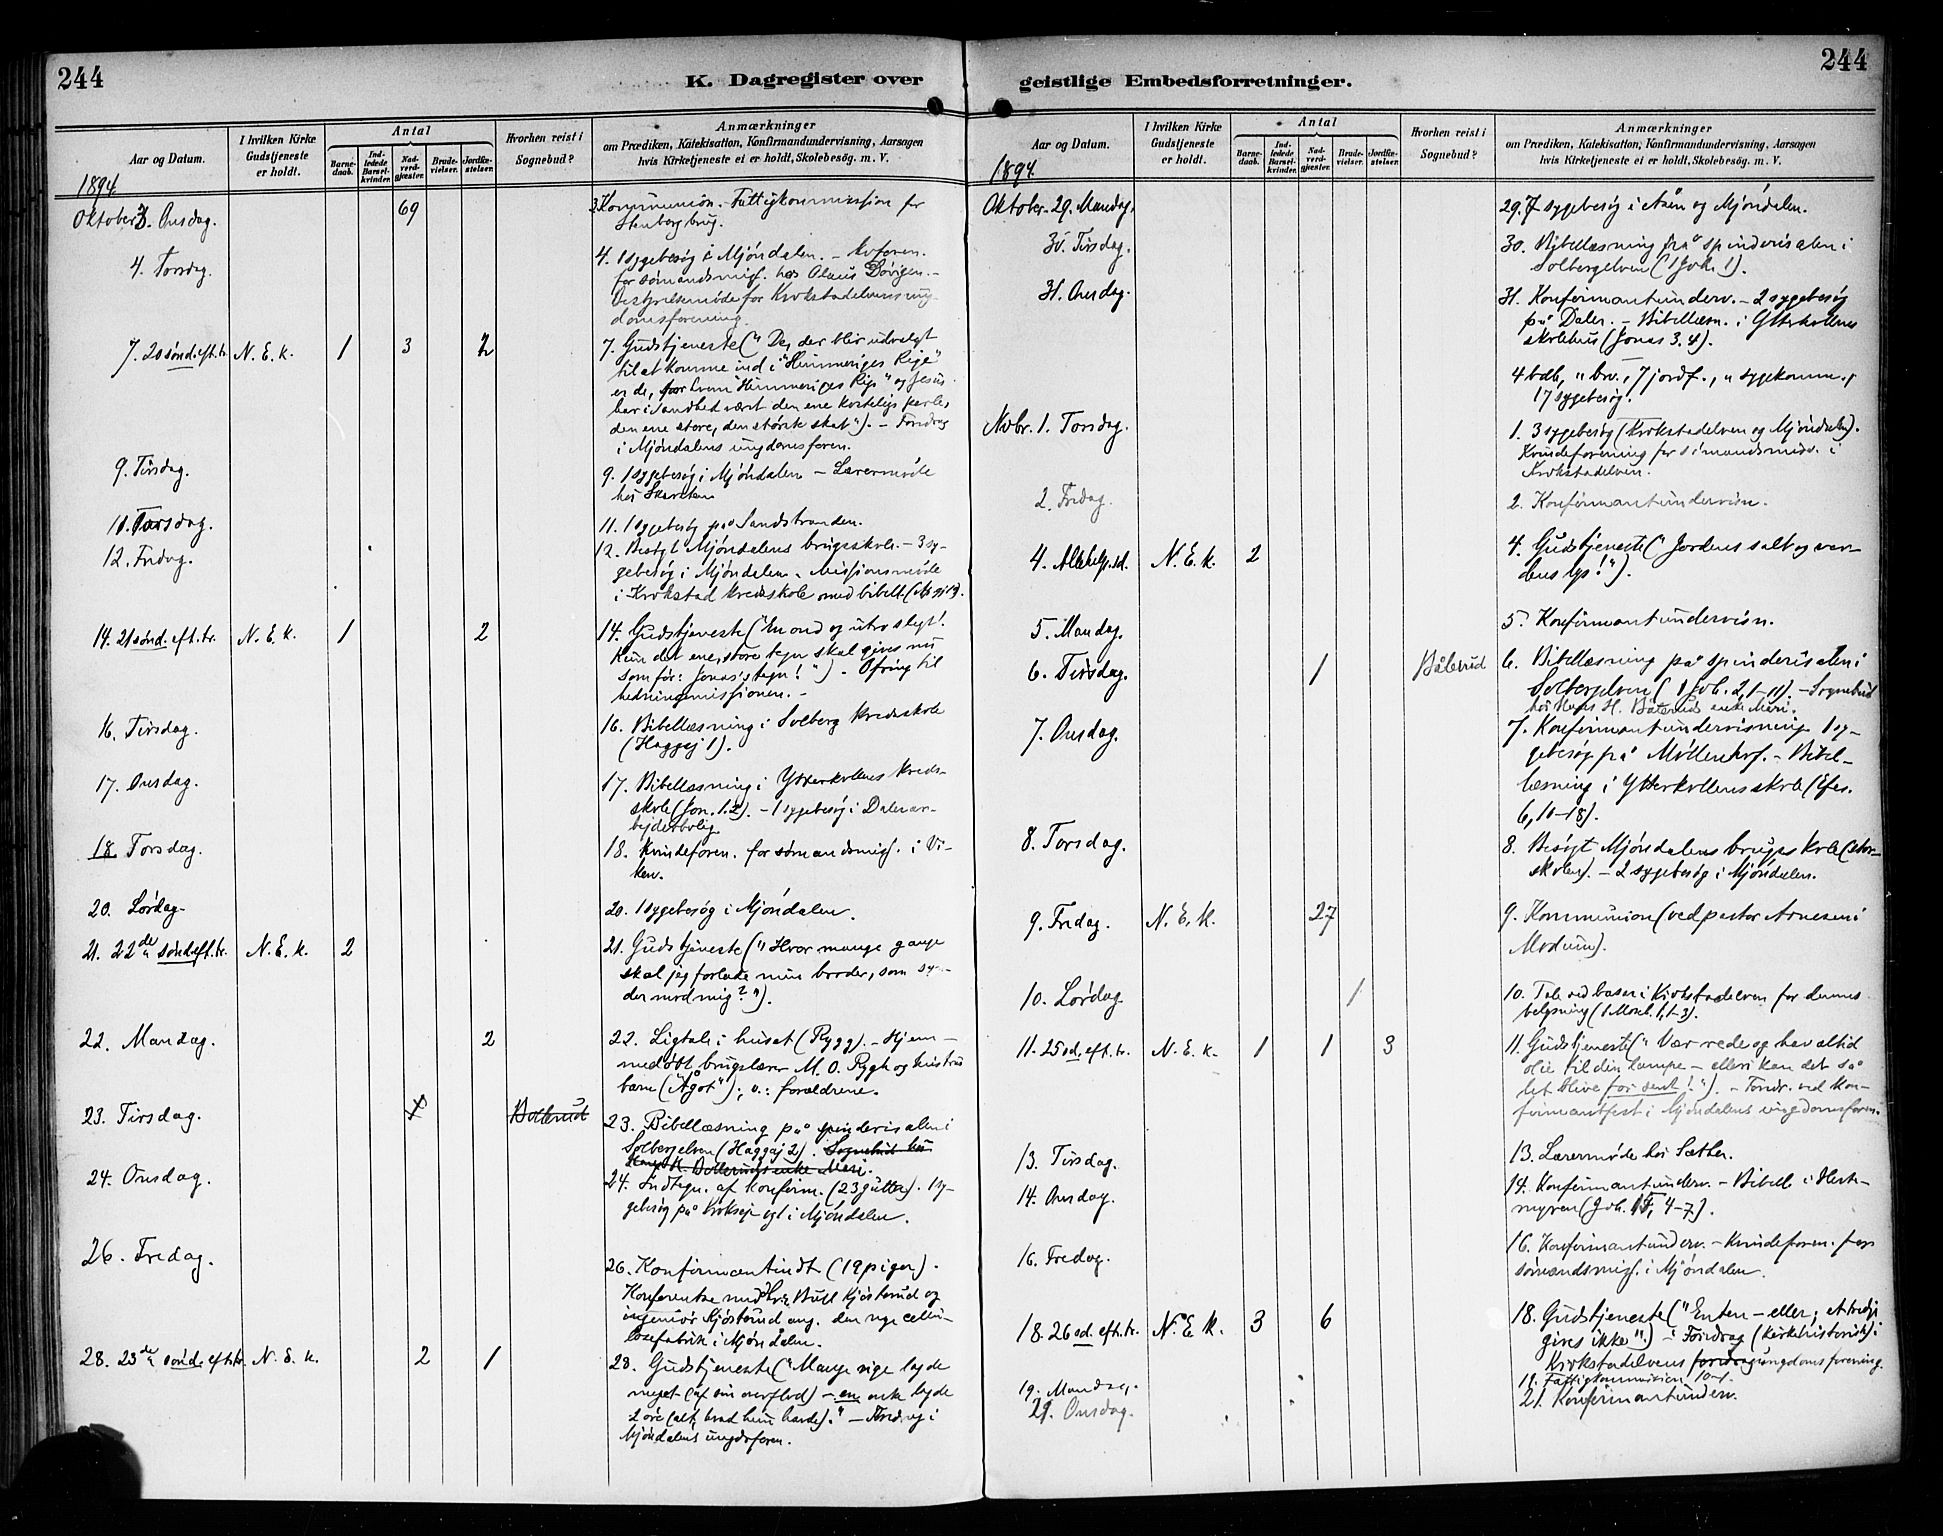 244
K. Dagregister over
Aar og Datum.
I hvilken Kirke
Gudstjeneste
er holdt.
Antal
Barne-
daab.
Ind-
ledede
Barsel-
kvinder.
Nad-
verd-
gjæster.
Brude-
vielser.
Jordfæ-
stelser.
Hvorhen reist i
Sognebud?
Anmærkninger
om Prædiken, Katekisation, Konfirmandundervisning, Aarsagen
hvis Kirketjeneste ei er holdt, Skolebesøg. m. V.
1894
Oktober 3. Onsdag. 69 3. Kommunion. Fattigkommission for
Stenbergbrug.
4. Torsdag. 4. 1 sygebesøg i Mjøndalen. – Kvforen.
for sømandsmis. hos Olaus Døvigen. –
Bestyrelsemøde for Krokstadelvens ung-
domsforening.
7. 20 sønd. eft. tr. N. E. k. 1 3 2 7. Gudstjeneste ("De, der blir udvalgt
til at komme ind i "Himmeriges Rige"
er de, for hvem "Himmeriges Rige" og Jesus
har i sandhed været den ene kostelige perle,
den ene store, den største skat"). – Foredrag
i Mjøndalens ungdomsforen.
9. Tirsdag. 9. 1 sygebesøg i Mjøndalen – Lærermøde
hos
11. Torsdag. 11. 1 sygebesøg på Sandstranden.
12. Fredag. 12. Besøgt Mjøndalens brugsskole. – 3 sy-
gebesøg i Mjøndalen. Missionsmøde
i Krokstad kredsskole med bibell.
14. 21 sønd. eft. tr. N. E. k. 1 2 14. Gudstjeneste ("En ond og utro slegt!
Kun det ene, store tegn skal gives nu
som før: Jonas's tegn!") – Ofring til
hedningemissionen. –
16. Tirsdag. 16. Bibellæsning i Solberg kredsskole
(Haggaj 1).
17. Onsdag. 17. Bibellæsning i Ytterkollens kreds-
skole (Jon. 1.2). – 1 sygebesøg i Daler ar-
bejderbolig.
18. Torsdag. 18. Kvindeforen. for sømandsmis. i Vi-
ken.
20. Lørdag. 20. 1 sygebesøg i Mjøndalen.
21. 22de sønd. eft. tr. N. E. k. 2 21. Gudstjeneste ("Hvor mange gange
skal jeg forlade min broder, som syn-
der mod mig?").
22. Mandag. 2 22. Ligtale i huset (Rygg). – Hjem-
medøbt brugslærer M. O. Rygh og hustrus
barn ("Ågot"); v.: forældrene.
23. Tirsdag. Bollerud 23. Bibellæsning på spinderisalen i
Solbergelven (Haggaj 2). Sognebud hos
Hans H. Bollerud's enke Mari.
24. Onsdag. 24. Indtegn. af konfirm. (23 gutter). 1 sy-
gebesøg på Krokseje og 1 i Mjøndalen.
26. Fredag. 26. Konfirmantindt. (19 piger).
Konferentse med Bull Kjøsterud og
ingeniør Kjøsterud ang. den nye cellu-
losefabrik i Mjøndalen.
28. 23de sønd. eft. tr. N. E. k. 2 1 28. Gudstjeneste ("Mange rige lagde
meget (af sin overflod) – en enke lagde
2 øre (alt, hvad hun havde)." – Foredrag i
Mjøndalens ungdsforen.
244
geistlige Embedsforretninger.
Aar og Datum.
I hvilken Kirke
Gudstjeneste
er holdt.
Antal
Barne-
daab.
Ind-
ledede
Barsel-
kvinder.
Nad-
verd-
gjæster.
Brude-
vielser.
Jordfæ-
stelser.
Hvorhen reist i
Sognebud?
Anmærkninger
om Prædiken, Katekisation, Konfirmandundervisning, Aarsagen
hvis Kirketjeneste ei er holdt, Skolebesøg. m. V.
1894.
Oktober. 29. Mandag. 29. 7 sygebesøg i Åsen og Mjøndalen.
30. Tirsdag. 30. Bibellæsning på spinderisalen i
Solbergelven (1 Joh. 1).
31. Onsdag. 31. Konfirmantunderv. – 2 sygebesøg
på Daler. – Bibellæsn. i Ytterkollens
skolehus (Jonas 3. 4).
4 bdb, " brv., 7 jordf., " sygekomm.,
17 sygebesøg.
Novbr. 1. Torsdag. 1. 3 sygebesøg (Krokstadelven og Mjøndalen).
Kvindeforening for sømandsmiss. i
Krokstadelven.
2. Fredag. 2. Konfirmantundervisn.
4. Allehelg.sd. N. E. k. 2 4. Gudstjeneste ("Jordens salt og ver-
dens lys!").
5. Mandag. 5. Konfirmantundervisn.
6. Tirsdag. 1 Båterud 6. Bibellæsning på spinderisalen i
Solbergelven (1 Joh. 2, 1–11). – Sognebud
hos Hans H. Båteruds enke Mari.
7. Onsdag. 7. Konfirmantundervisning. 1 sy-
gebesøg på Møllenhof. – Bibel-
læsning i Ytterkollens skole (Efes.
6, 10–18).
8. Torsdag. 8. Besøgt Mjøndalens brugsskole (stor-
skolen). – 2 sygebesøg i Mjøndalen.
9. Fredag. N. E. k. 27 9. Kommunion (ved pastor Arnesen i
Modum).
10. Lørdag. 1 10. Tale ved basar i Krokstadelven for dennes
belysning (1 Moseb. 1, 1–3).
11. 25 sd. eft. tr. N. E. k. 1 1 3 11. Gudstjeneste ("Vær rede og hav altid
olie til din lampe – ellers kan det så
let blive for sent!"). – Foredr. ved kon-
firmantfest i Mjøndalens ungdomsforen.
13. Tirsdag. 13. Lærermøde hos Sæther.
14. Onsdag. 14. Konfirmantunderv. – Bibell. i Horte-
myren (Joh. 15, 4–7).
16. Fredag. 16. Konfirmantunderv. – Kvindeforen. for
sømandsmis. i Mjøndalen.
18. 26 sd. eft. tr. N. E. k. 3 6 18. Gudstjeneste ("Enten – eller; et tredje
gives ikke".) – Foredrag (kirkehistorisk) i
Krokstadelvens foredrag ungdomsforening.
19. Mandag. 19. Fattigkommission
21. Onsdag. 21. Konfirmantunderv.